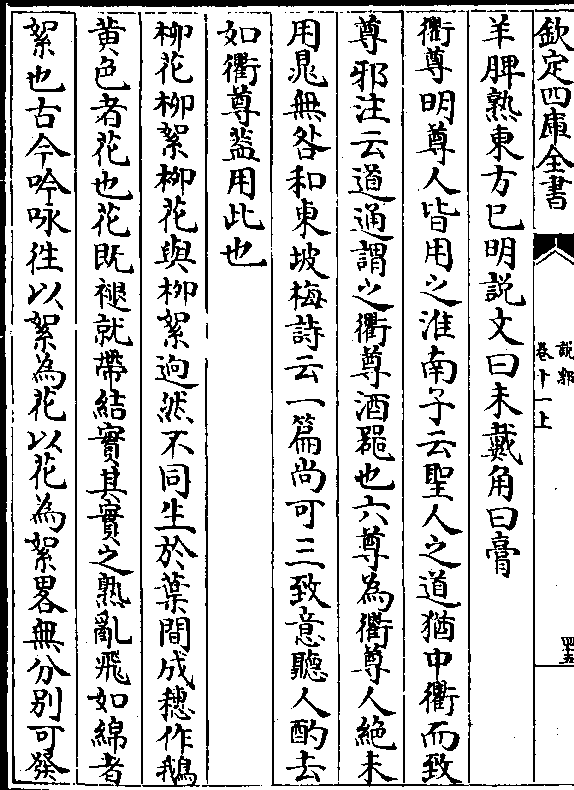 欽定四庫全書
說郛
卷十一上
四十五
羊脾熟東方已明說文曰未戴角曰膏
衢尊明尊人皆用之淮南子云聖人之道猶中衢而致
尊邪注云道通謂之衢尊酒噐也六尊為衢尊人絶未
用晁無咎和東坡梅詩云一篇尚可三致意聽人酌去
如衢尊葢用此也
柳花柳絮柳花與柳絮逈然不同生於葉間成穗作鵝
黃色者花也花既褪就帶結實其實之熟亂飛如綿者
絮也古今吟咏徃以絮為花以花為絮畧無分别可發